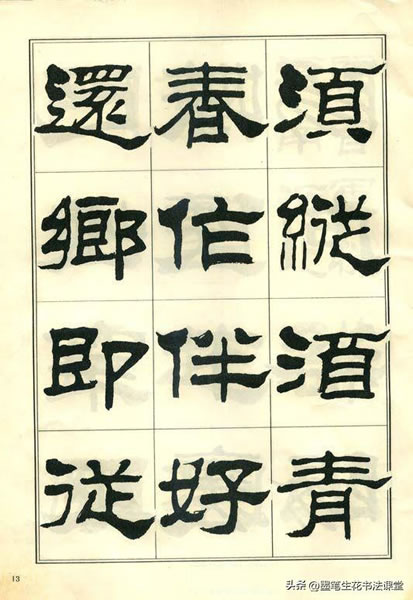 須縱酒青
春作伴好
還鄉即從
13
头条 @墨笔生花书法课堂